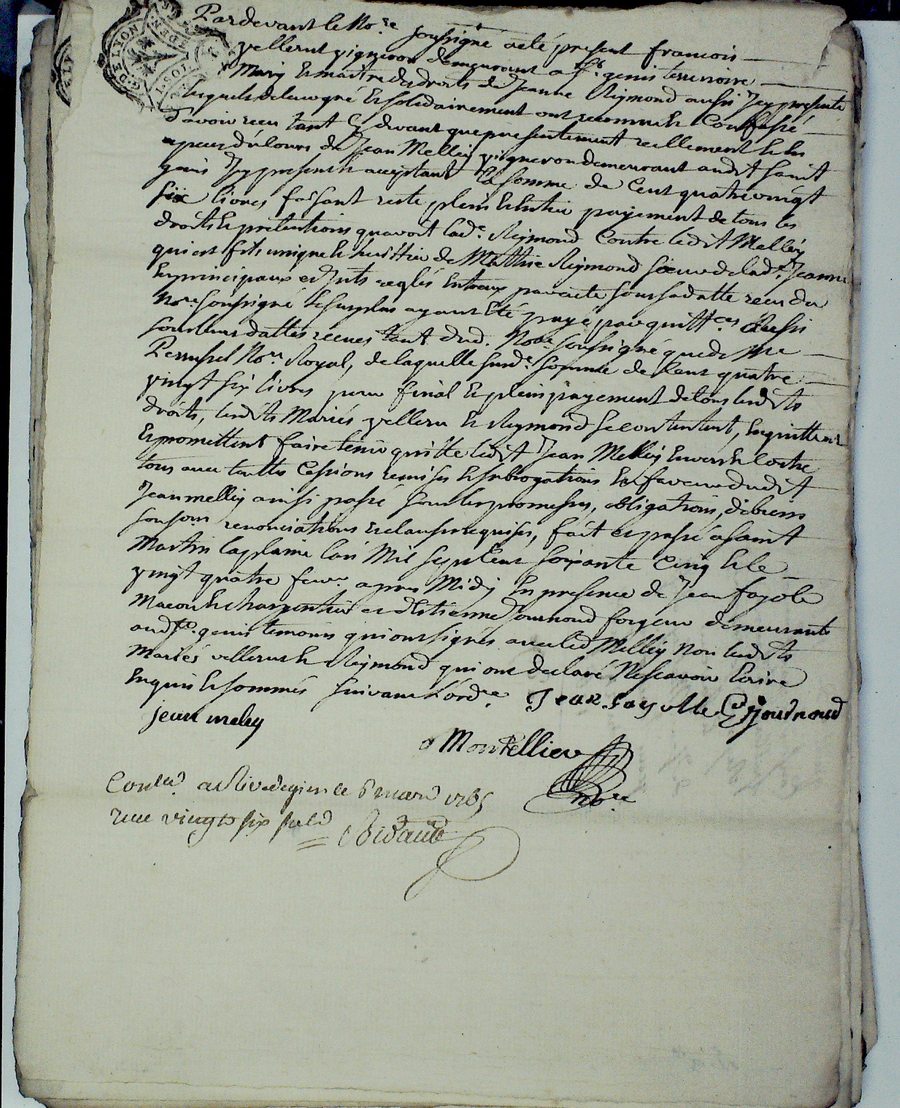 Pardevant le No.re soussigné a été present francois
vellerut vigneron demeurant a St genis terrenoire
Mary & maitre des droits de Jeanne Reymond aussi Icy presente
lesquels de leur gré & solidairement ont reconnu & Confessé
d'avoir reçu tant Cy devant que presentement reellement & des
deniers de Jean Melley vigneron demeurant audit Saint
genis Icy present & acceptant la somme de Cent quatre vingt
six livres faisant reste plein & Entier payement de tous les
droits & pretentions qu'avoit lad.e Reymond Contre ledit Melley
qui est fils unique & heritier de Matthie Reymond soeur de lad.e Jeanne
En principaux et Jnts reglés Entreux par acte sous sa datte recu du
No.re soussigné le surplus ayant Eté payé par quitt.ces aussi
sous leurs dattes recues tant dud. No.re soussigné que de Me
Perussel No.re Royal, de laquelle susd.e somme de Cent quatre
vingt six livres pour final & plein payement de tous lesdits
droits, lesdits Mariés vellerut & Reymond se contentent, En quittent
& promettent faire tenir quitte ledit Jean Melley Envers & Contre
tous avec touttes Cessions remises & subrogations En faveur dudit
Jean melley ainsi passé sous les promesses, obligations, de biens
soumissions renonciations & clauses requises, fait et passé a Saint
Martin laplaine l'an Mil sept Cent soixante Cinq & le
vingt quatre fevr. apres Midy En presence de Jean fayole
Macon & charpentier et d'Etienne Journoud forgeur demeurants
aud St. genis temoins qui ont signés avec led Melley Non lesdits
Mariés vellerut & Reymond qui ont declaré Ne scavoir Ecrire
Enquis & sommés suivant L'ord.e Jean fayolle E Journoud
jean meley
Montellier
no.re
Con.lé a Rivedegier le 6 mars 1765
recu vingt six sols